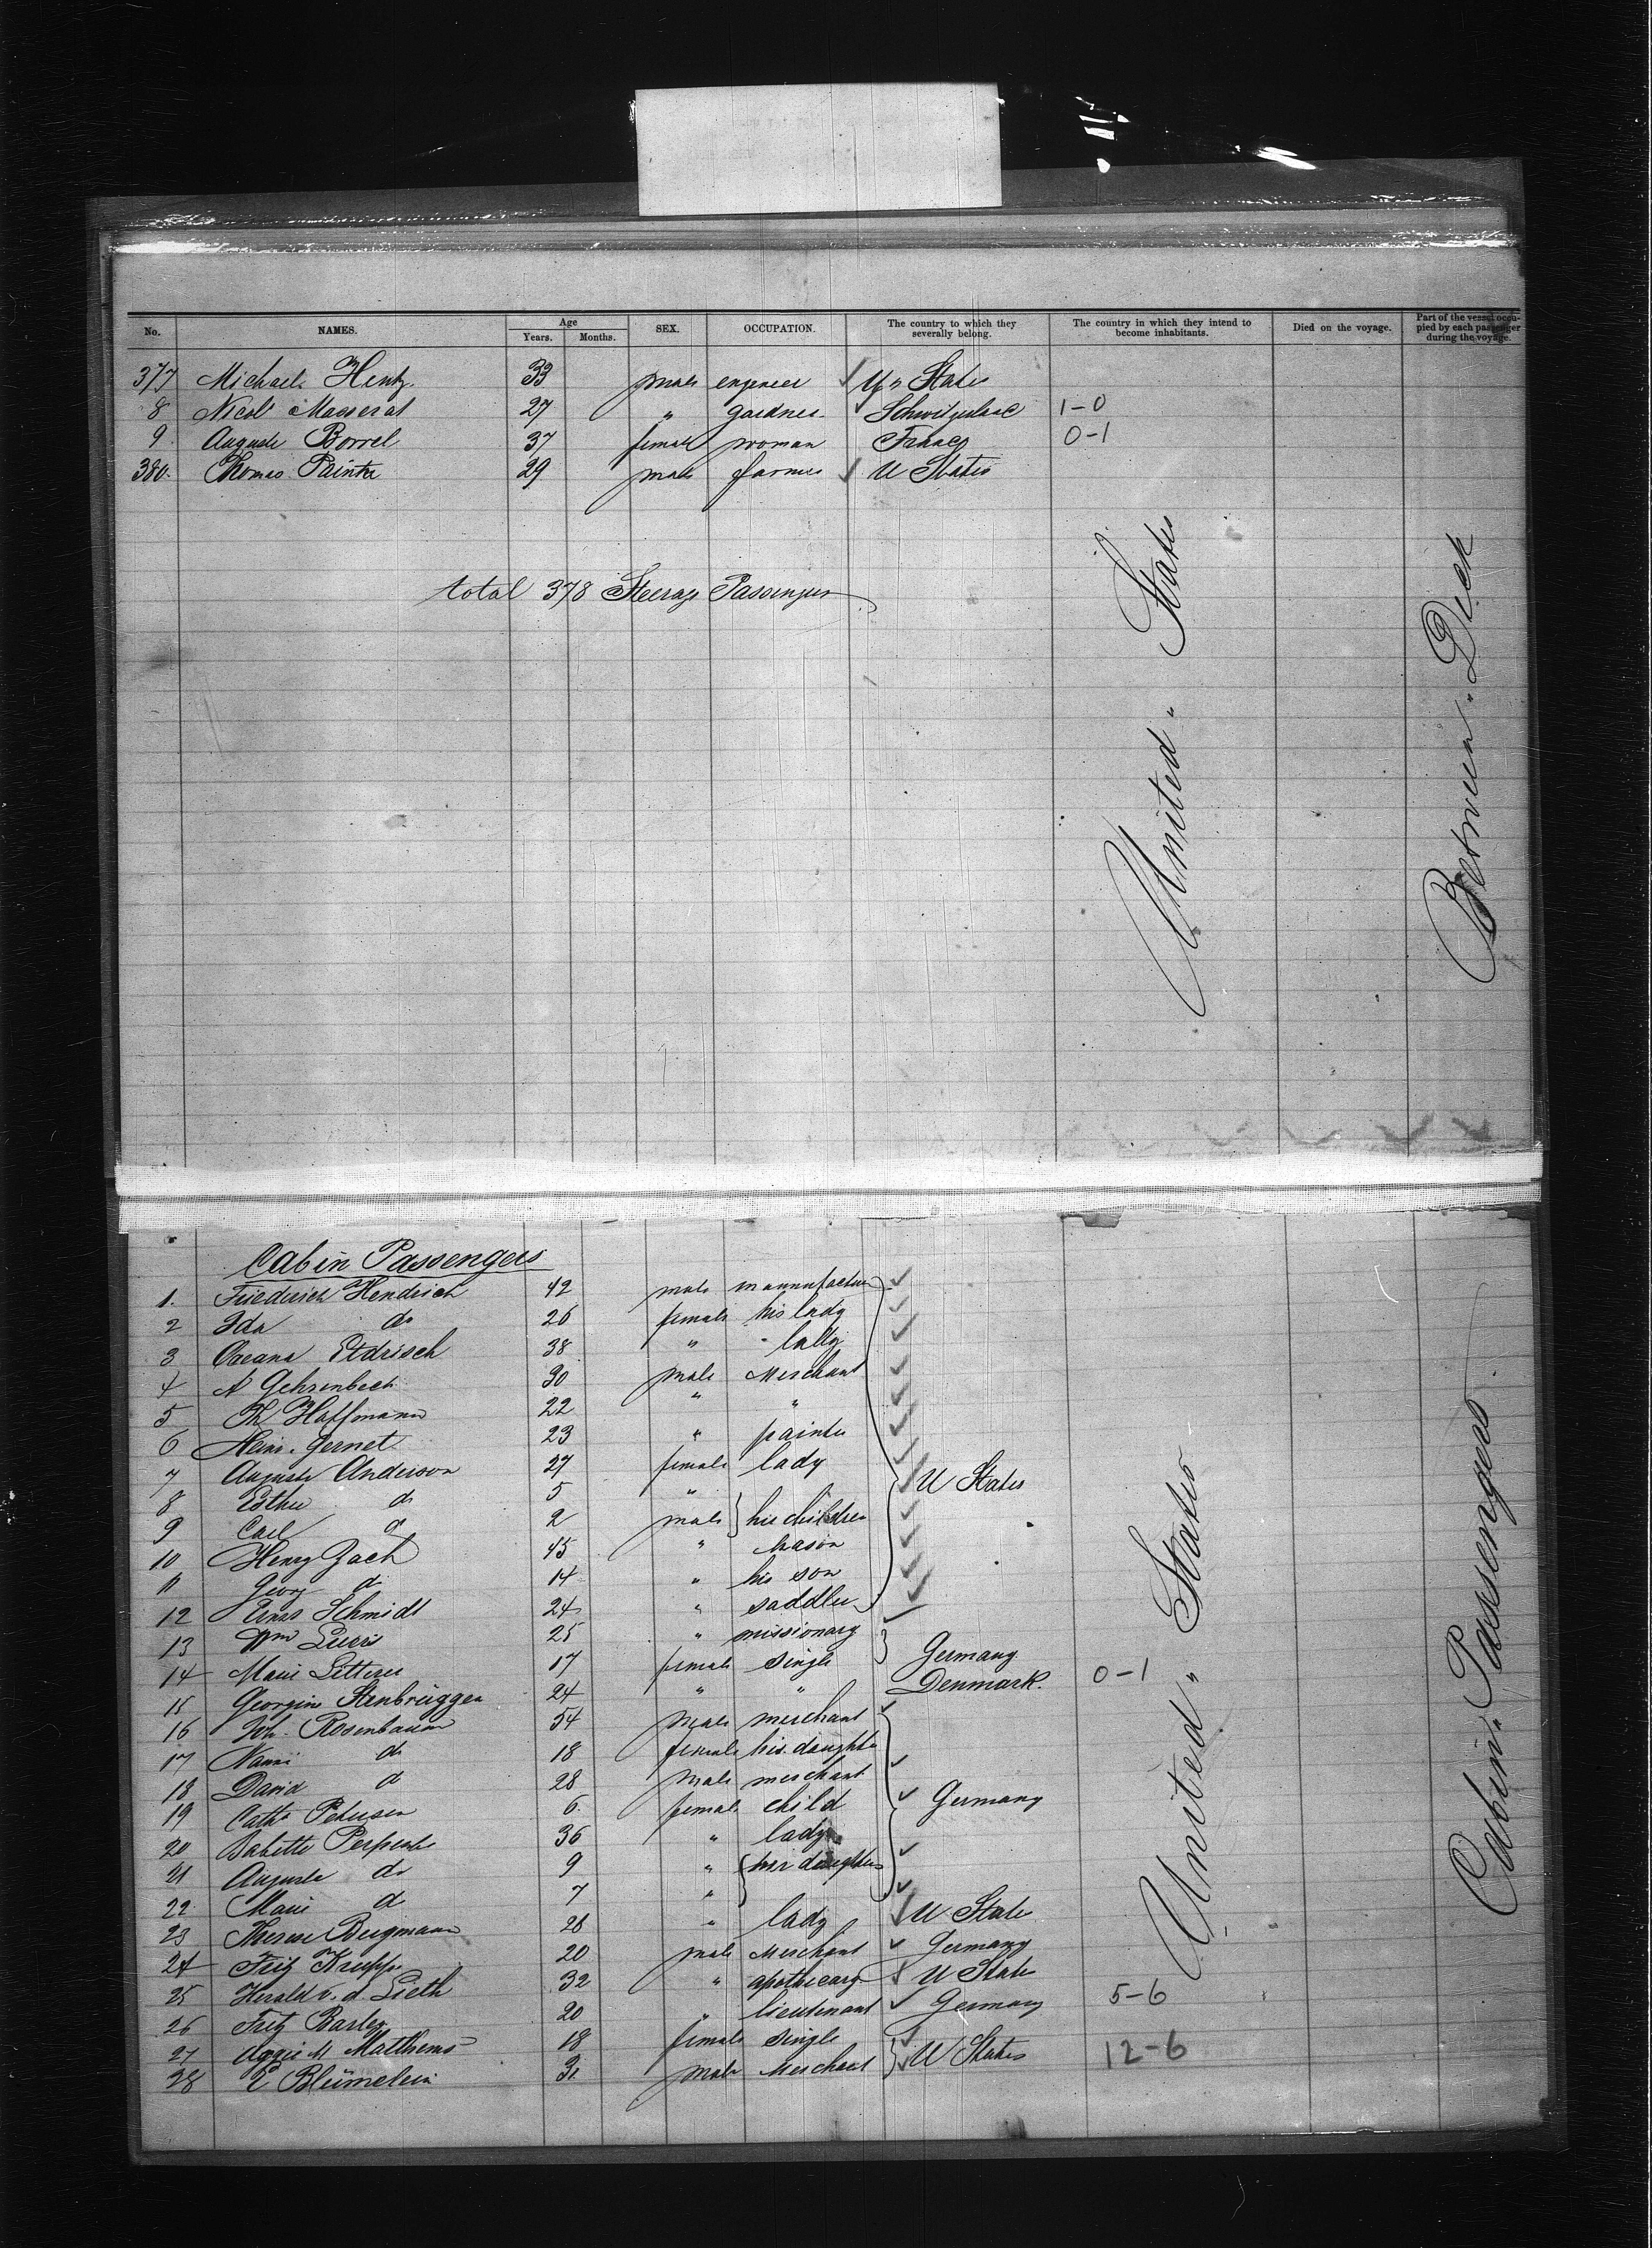 No. NAMES. Age Years. Months. SEX. OCCUPATION. The country to which they severally belong. The country in which they intend to become inhabitants. Died on the voyage. Part of the vessel occupied by each passenger during the voyage.
377 Michael Hentz. 33 male engineer U " States
8 27 " gardner 1-0
9 Auguste Borrel 37 female woman France 0-1
380. Thomas Painter 29 male farmer U States
total 378 Steerage Passengers
United " States
Between " Deck
Cabin Passengers
1. Friederich Hendrich 42 male
2 Ida do 26 female his lady
3 38 " " lady
4 A Gehrenbeck 30 male Merchant
5 Th Hoffmann 22 " "
6 Heinr. Gernet 23 " painter
7 Auguste Anderson 27 female lady U States
8 Esther do 5 "
9 Carl do 2 male his children
10 Henry Zach 45 "
11 Georg do 14 " his son
12 Ernst Schmidt 24 " saddler
13 Wm 25 " missionary
14 Marie 17 female single Germany
15 Georgine Stenbrüggen 24 " " Denmark. 0-1
16 Joh. Rosenbaum 54 male merchant
17 Nanni do 18 female his daughter
18 David do 28 male merchant
19 Cath Petersen 6. female child Germany
20 Babette 36 " lady
21 Auguste do 9 " her daughters
22 Marie do 7 "
23 Therese Bergmann 28 " lady U State
24 Fritz Krupp 20 male Merchant Germany
25 Herald v. d. Lieth 32 " apothecary U State
26 Fritz 20 " lieutenant Germany 5-6
27 Aggie M Matthews 18 female single
28 E Blümelein 31 male Merchant U States 12-6
United " States
Cabin " Passengers